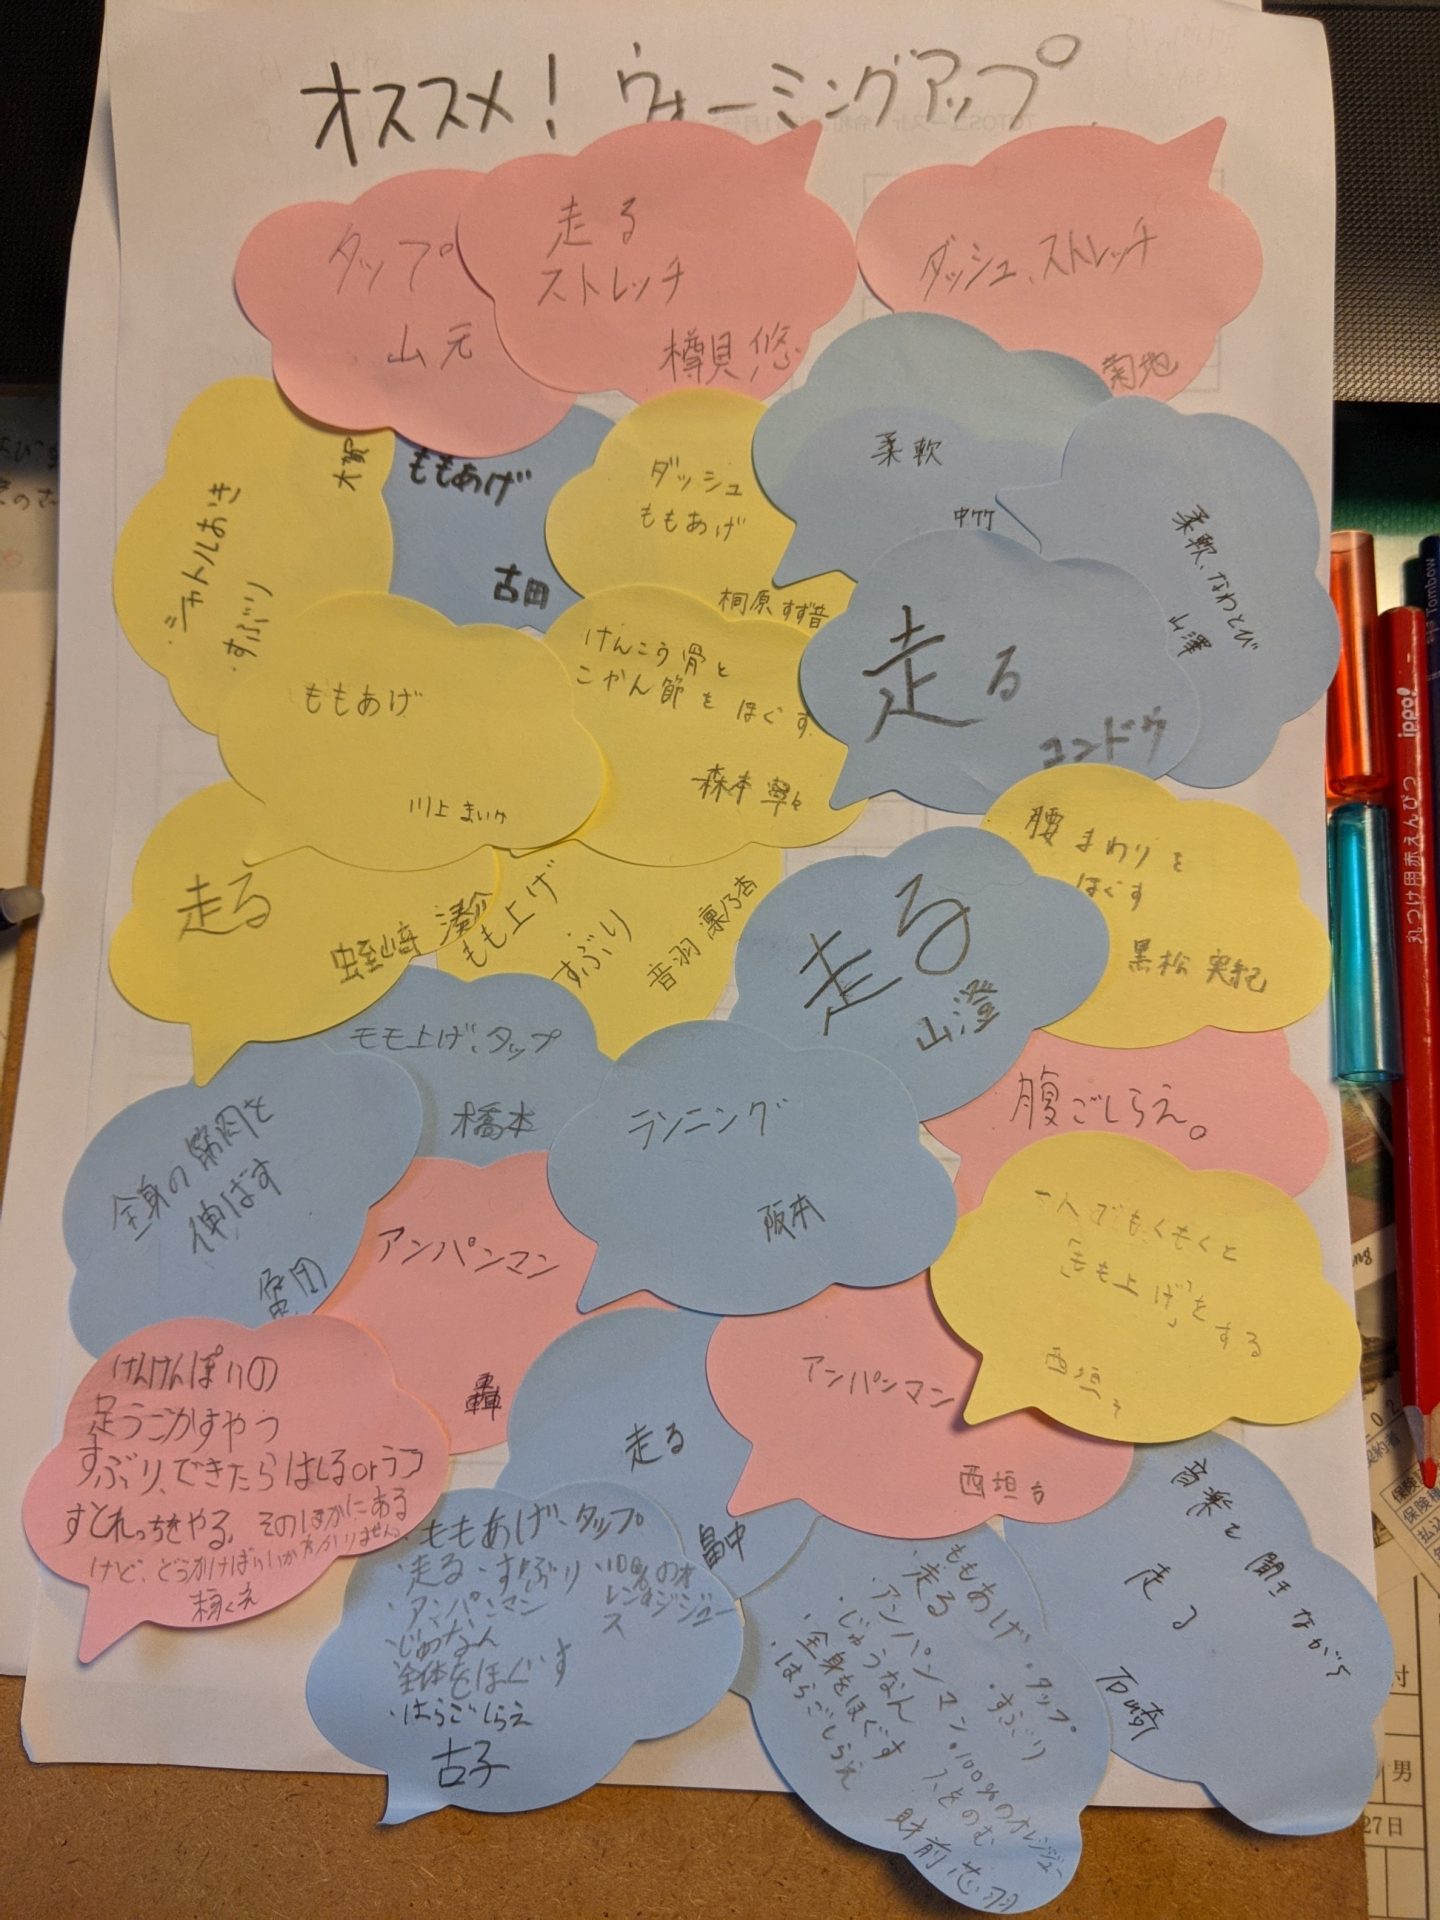 オススメ！ウォーミングアップ
タップ
山元
走る
ストレッチ
樽貝 悠
ダッシュ、ストレッチ
菊地
・シャトルおき
・すぶり
大賀
ももあげ
古田
ダッシュ
ももあげ
桐原 すず音
柔軟
中竹
柔軟、なわとび
山澤
ももあげ
川上 まいか
けんこう骨と
こかん節をほぐす
森本 寧々
走る
コンドウ
走る
湊介
もも上げ
すぶり
音羽 凛乃杏
走る
山澄
腰まわりを
ほぐす
黒松 実紀
モモ上げ、タップ
橋本
ランニング
阪本
腹ごしらえ。
全身の筋肉を
伸ばす
アンパンマン
轟
でもくもくと
「もも上げ」をする
西垣
けんけんぱりの
足うごかすやつ
すぶり、できたらはしるorラコ
すとれっちをやる、そのほかにある
けど、どうかけばいいか分かりません。
走る
畠中
アンパンマン
西垣
音楽を聞きながら
走る
石崎
・ももあげ、タップ
・走る・すぶり ・100%のオ
レンジジュー
ス
・アンパンマン
・じゅなん
全体をほぐす
・はらごしらえ
古子
・ももあげ ・タップ
・走る ・すぶり
・アンパンマン ・100%のオレンジジュー
スをのむ
・じゅうなん
・全身をほぐす
・はらごしらえ
財前 芯羽
丸つけ用赤えんぴつ ippo!
Tombow
男
27日